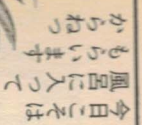 今日こそは
風呂に入って
もらいます
からねっ